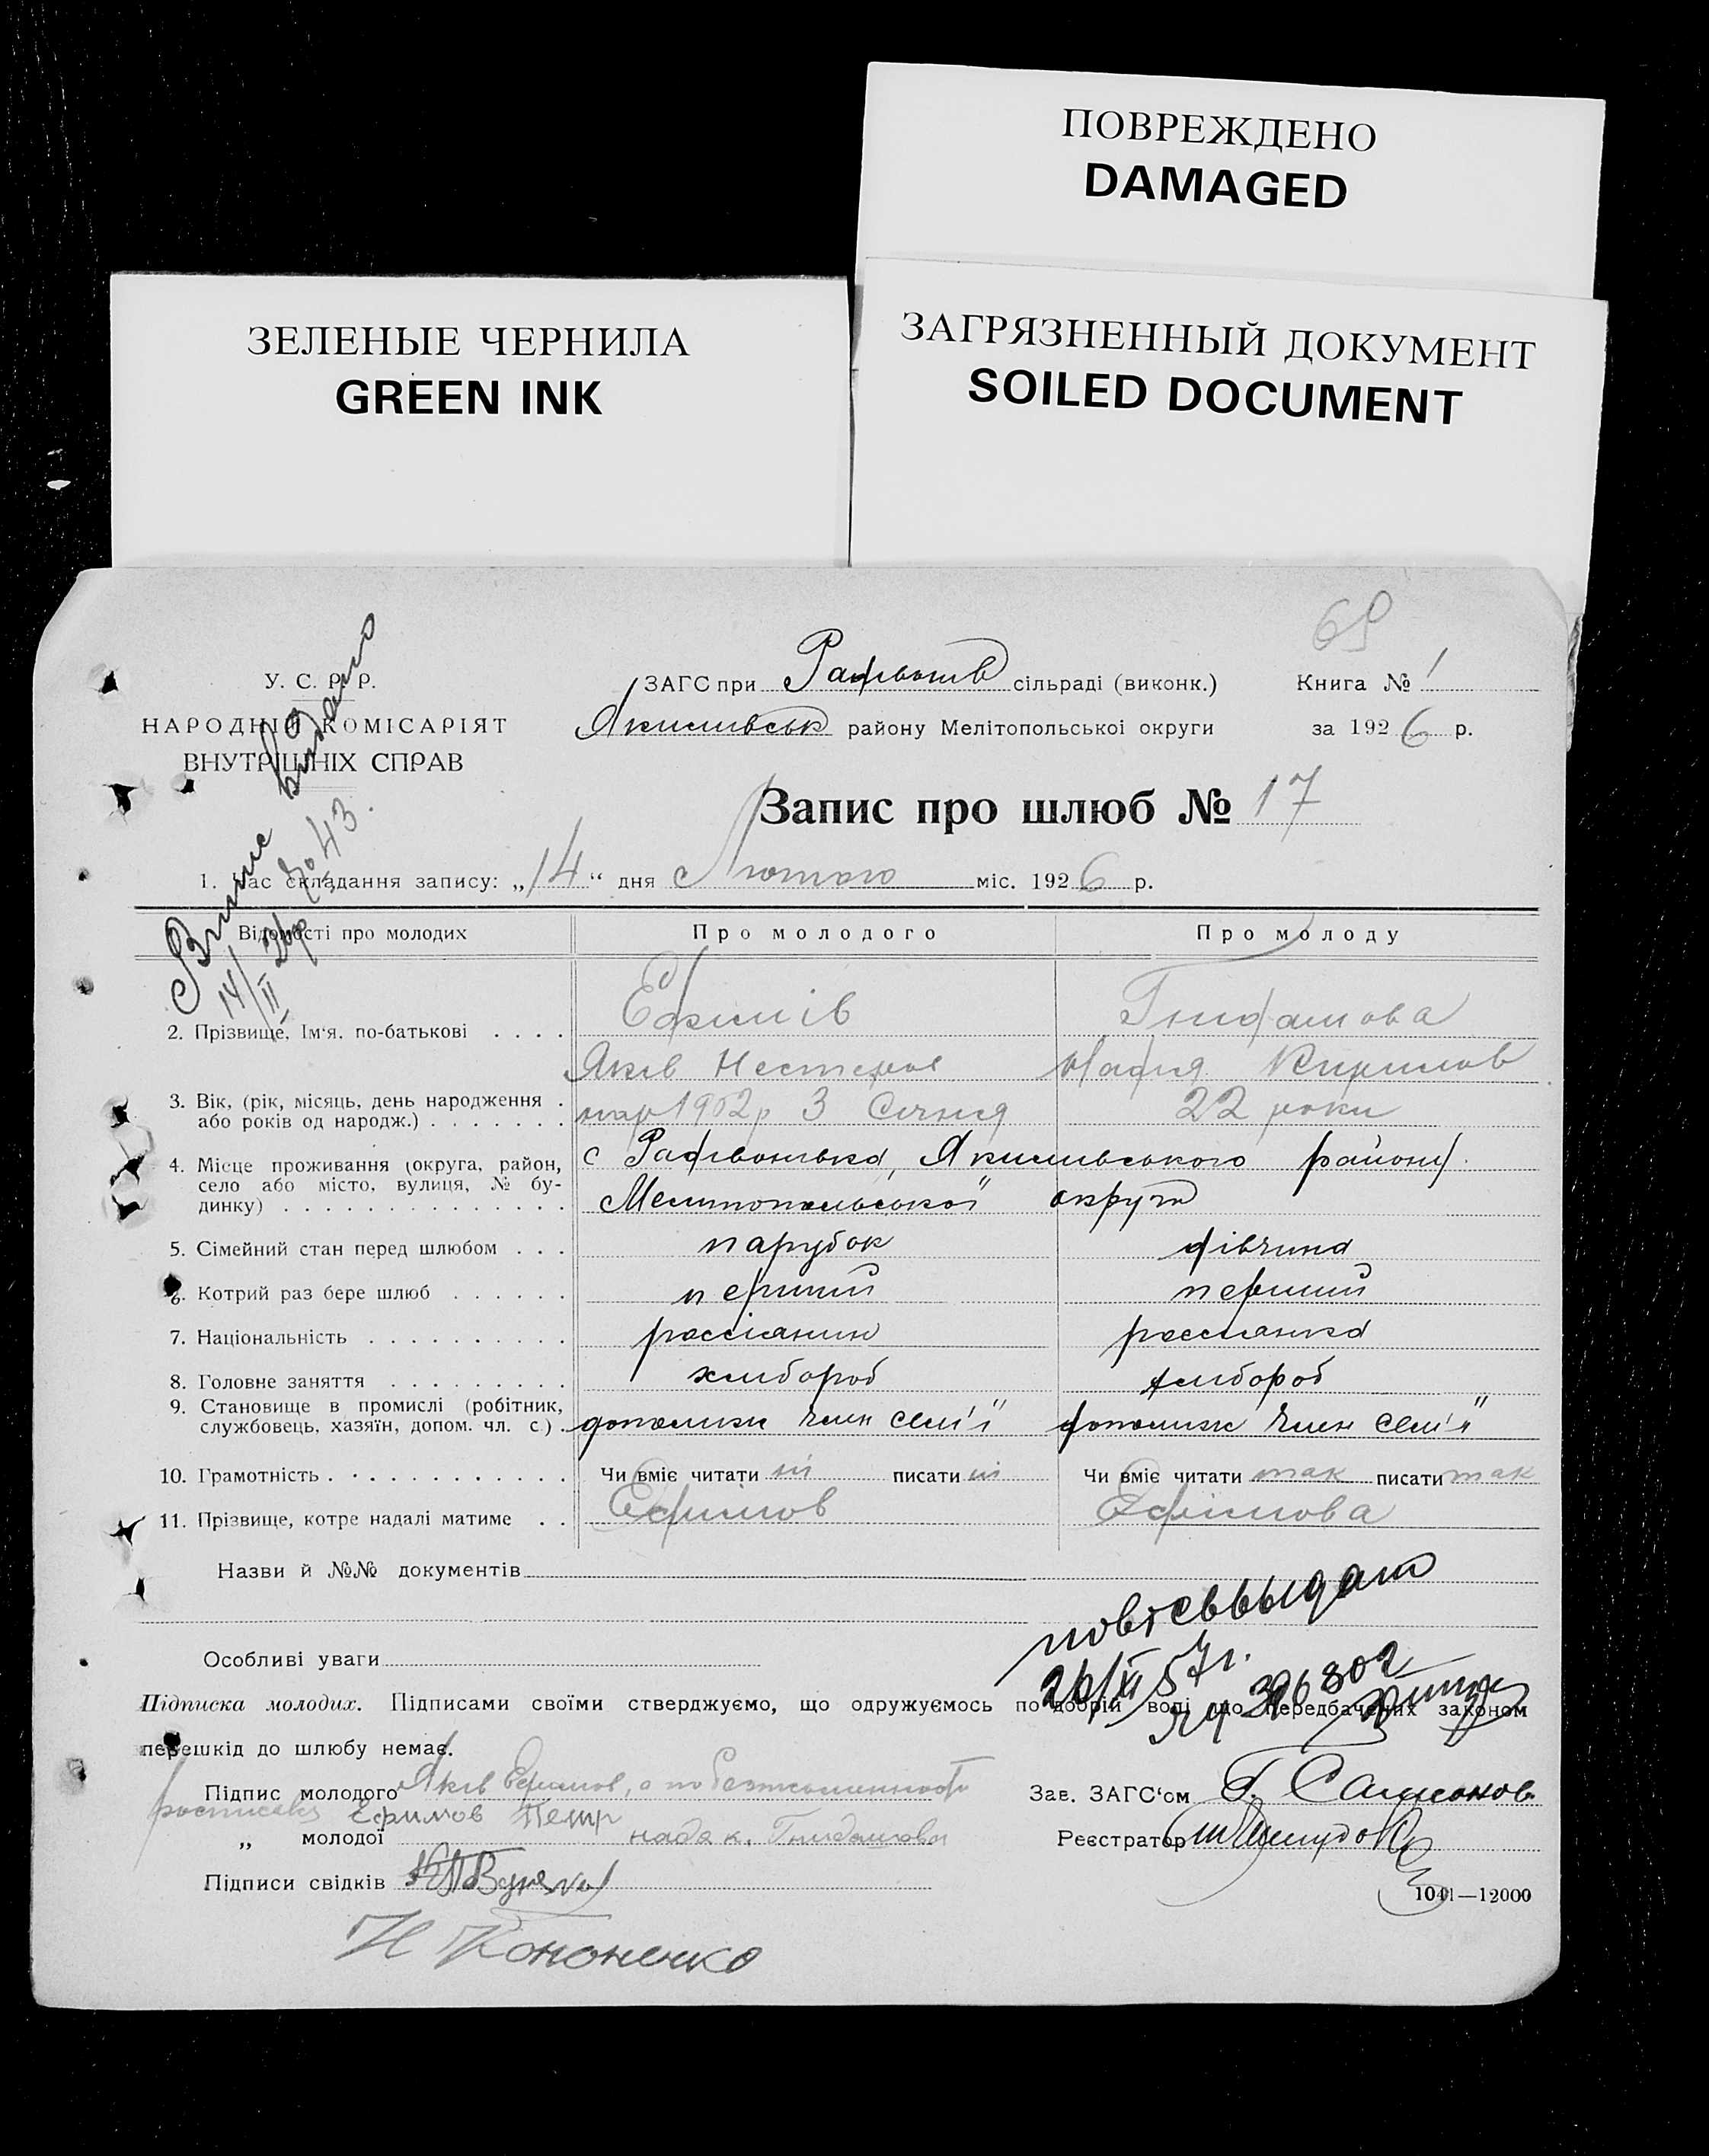 ПОВРЕЖДЕНО
DAMAGED
ЗЕЛЕНЫЕ ЧЕРНИЛА
GREEN INK
ЗАГРЯЗНЕННЫЙ ДОКУМЕНТ
SOILED DOCUMENT
У. С. Р. Р.
НАРОДНІЙ КОМІСАРІЯТ
ВНУТРІШНІХ СПРАВ
Випис видано
14/II 26р № 43.
ЗАГС при сільраді (виконк.)
району Мелітопольської округи
Книга № 1
за 1926 р.
Запис про шлюб № 17
1. Час складання запису: „14“ дня Лютого міс. 1926 р.
Відомості про молодих Про молодого Про молоду
2. Прізвище, Ім'я, по-батькові . . . . Ефимів
Яків Нестеров Кирилов
3. Вік, (рік, місяць, день народження .
або років од народж.) . . . . . . . нар 1902р 3 Січня 22 роки
4. Місце проживання (округа, район,
село або місто, вулиця, № бу-
динку) . . . . . . . . . . . . . .
с району
Мелитопольської округи
5. Сімейний стан перед шлюбом . . . парубок дівчина
6. Котрий раз бере шлюб . . . . . . перший перший
7. Національність . . . . . . . . . . россіанин россианка
8. Головне заняття . . . . . . . . . хлибороб хлибороб
9. Становище в промислі (робітник,
службовець, хазяїн, допом. чл. с.) . допомижн член семі'ї допомижн член семі'ї
10. Грамотність . . . . . . . . . . . . Чи вміє читати ні писати ні Чи вміє читати так писати так
11. Прізвище, котре надалі матиме . . Ефимов Ефимова
Назви й №№ документів
26/XI 57г.
Особливі уваги
Підписка молодих. Підписами своїми стверджуємо, що одружуємось по добрій волі що передбачених законом
перешкід до шлюбу немає.
Підпис молодого Яків Ефимов, а по
Ефимов Петр
„ молодої
Підписи свідків
Н Кононенко
Зав. ЗАГС'ом Г. Самсонов
Реєстратор
1041—12000